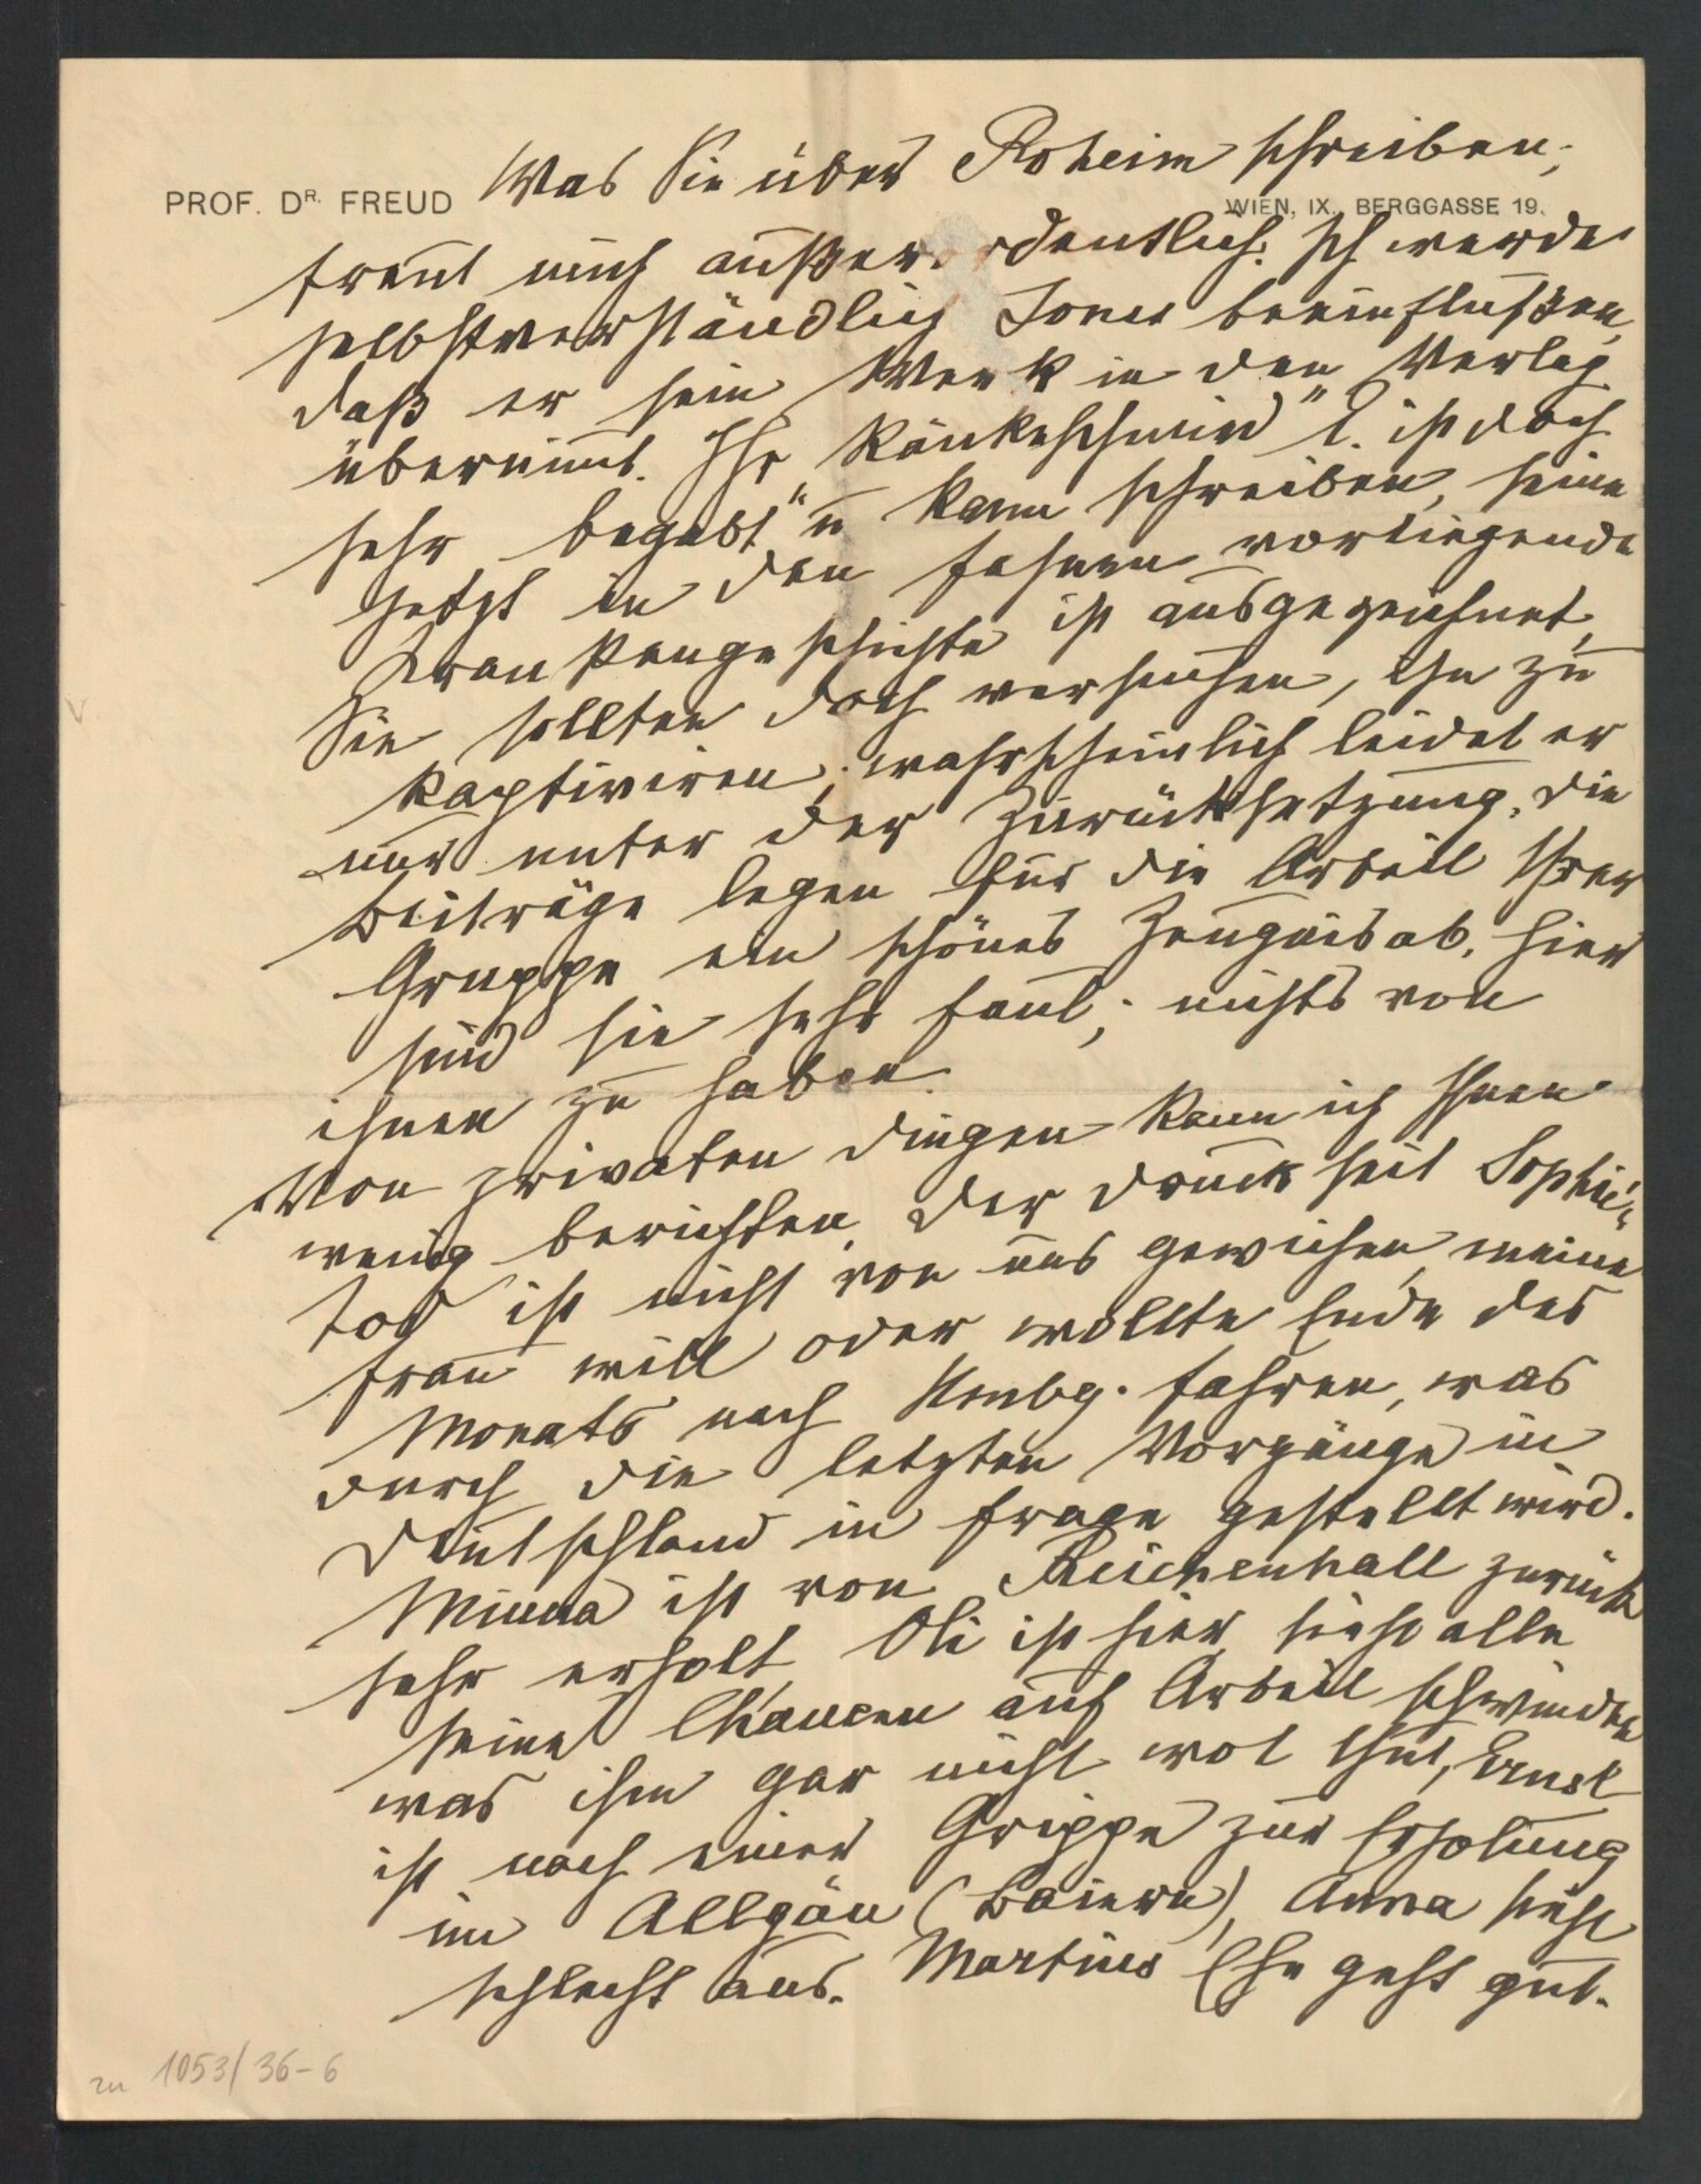 Was Sie über Roheim schreiben,
PROF. DR. FREUD WIEN, IX., BERGGASSE 19.
freut mich außerordentlich. Ich werde
selbstverständlich Jones beeinflußen,
daß er sein Werk in den Verlag
übernimt. Ihr „Ränkeschmied" E. ist doch
sehr „begabt" u kann schreiben, seine
jetzt in den Fahnen vorliegende
Krankengeschichte ist ausgezeichnet,
Sie sollten doch versuchen, ihn zu
kaptiviren; wahrscheinlich leidet er
nur unter der Zurücksetzung. Die
Beiträge legen für die Arbeit Ihrer
Gruppe ein schönes Zeugnis ab. Hier
sind sie sehr faul; nichts von
ihnen zu haben.
Von privaten Dingen kann ich Ihnen
wenig berichten. Der Druck seit Sophie's
Tod ist nicht von uns gewichen, meine
Frau will oder wollte Ende des
Monats nach Hmbg. fahren, was
durch die letzten Vorgänge in
Deutschland in Frage gestellt wird.
Minna ist von Reichenhall zurück
sehr erholt, Oli ist hier, sieht alle
seine Chancen auf Arbeit schwinden
was ihm gar nicht wol thut, Ernst
ist nach einer Grippe zur Erholung
im Allgäu (Baiern), Anna sieht
schlecht aus. Martins Ehe geht gut.
zu 1053/36-6